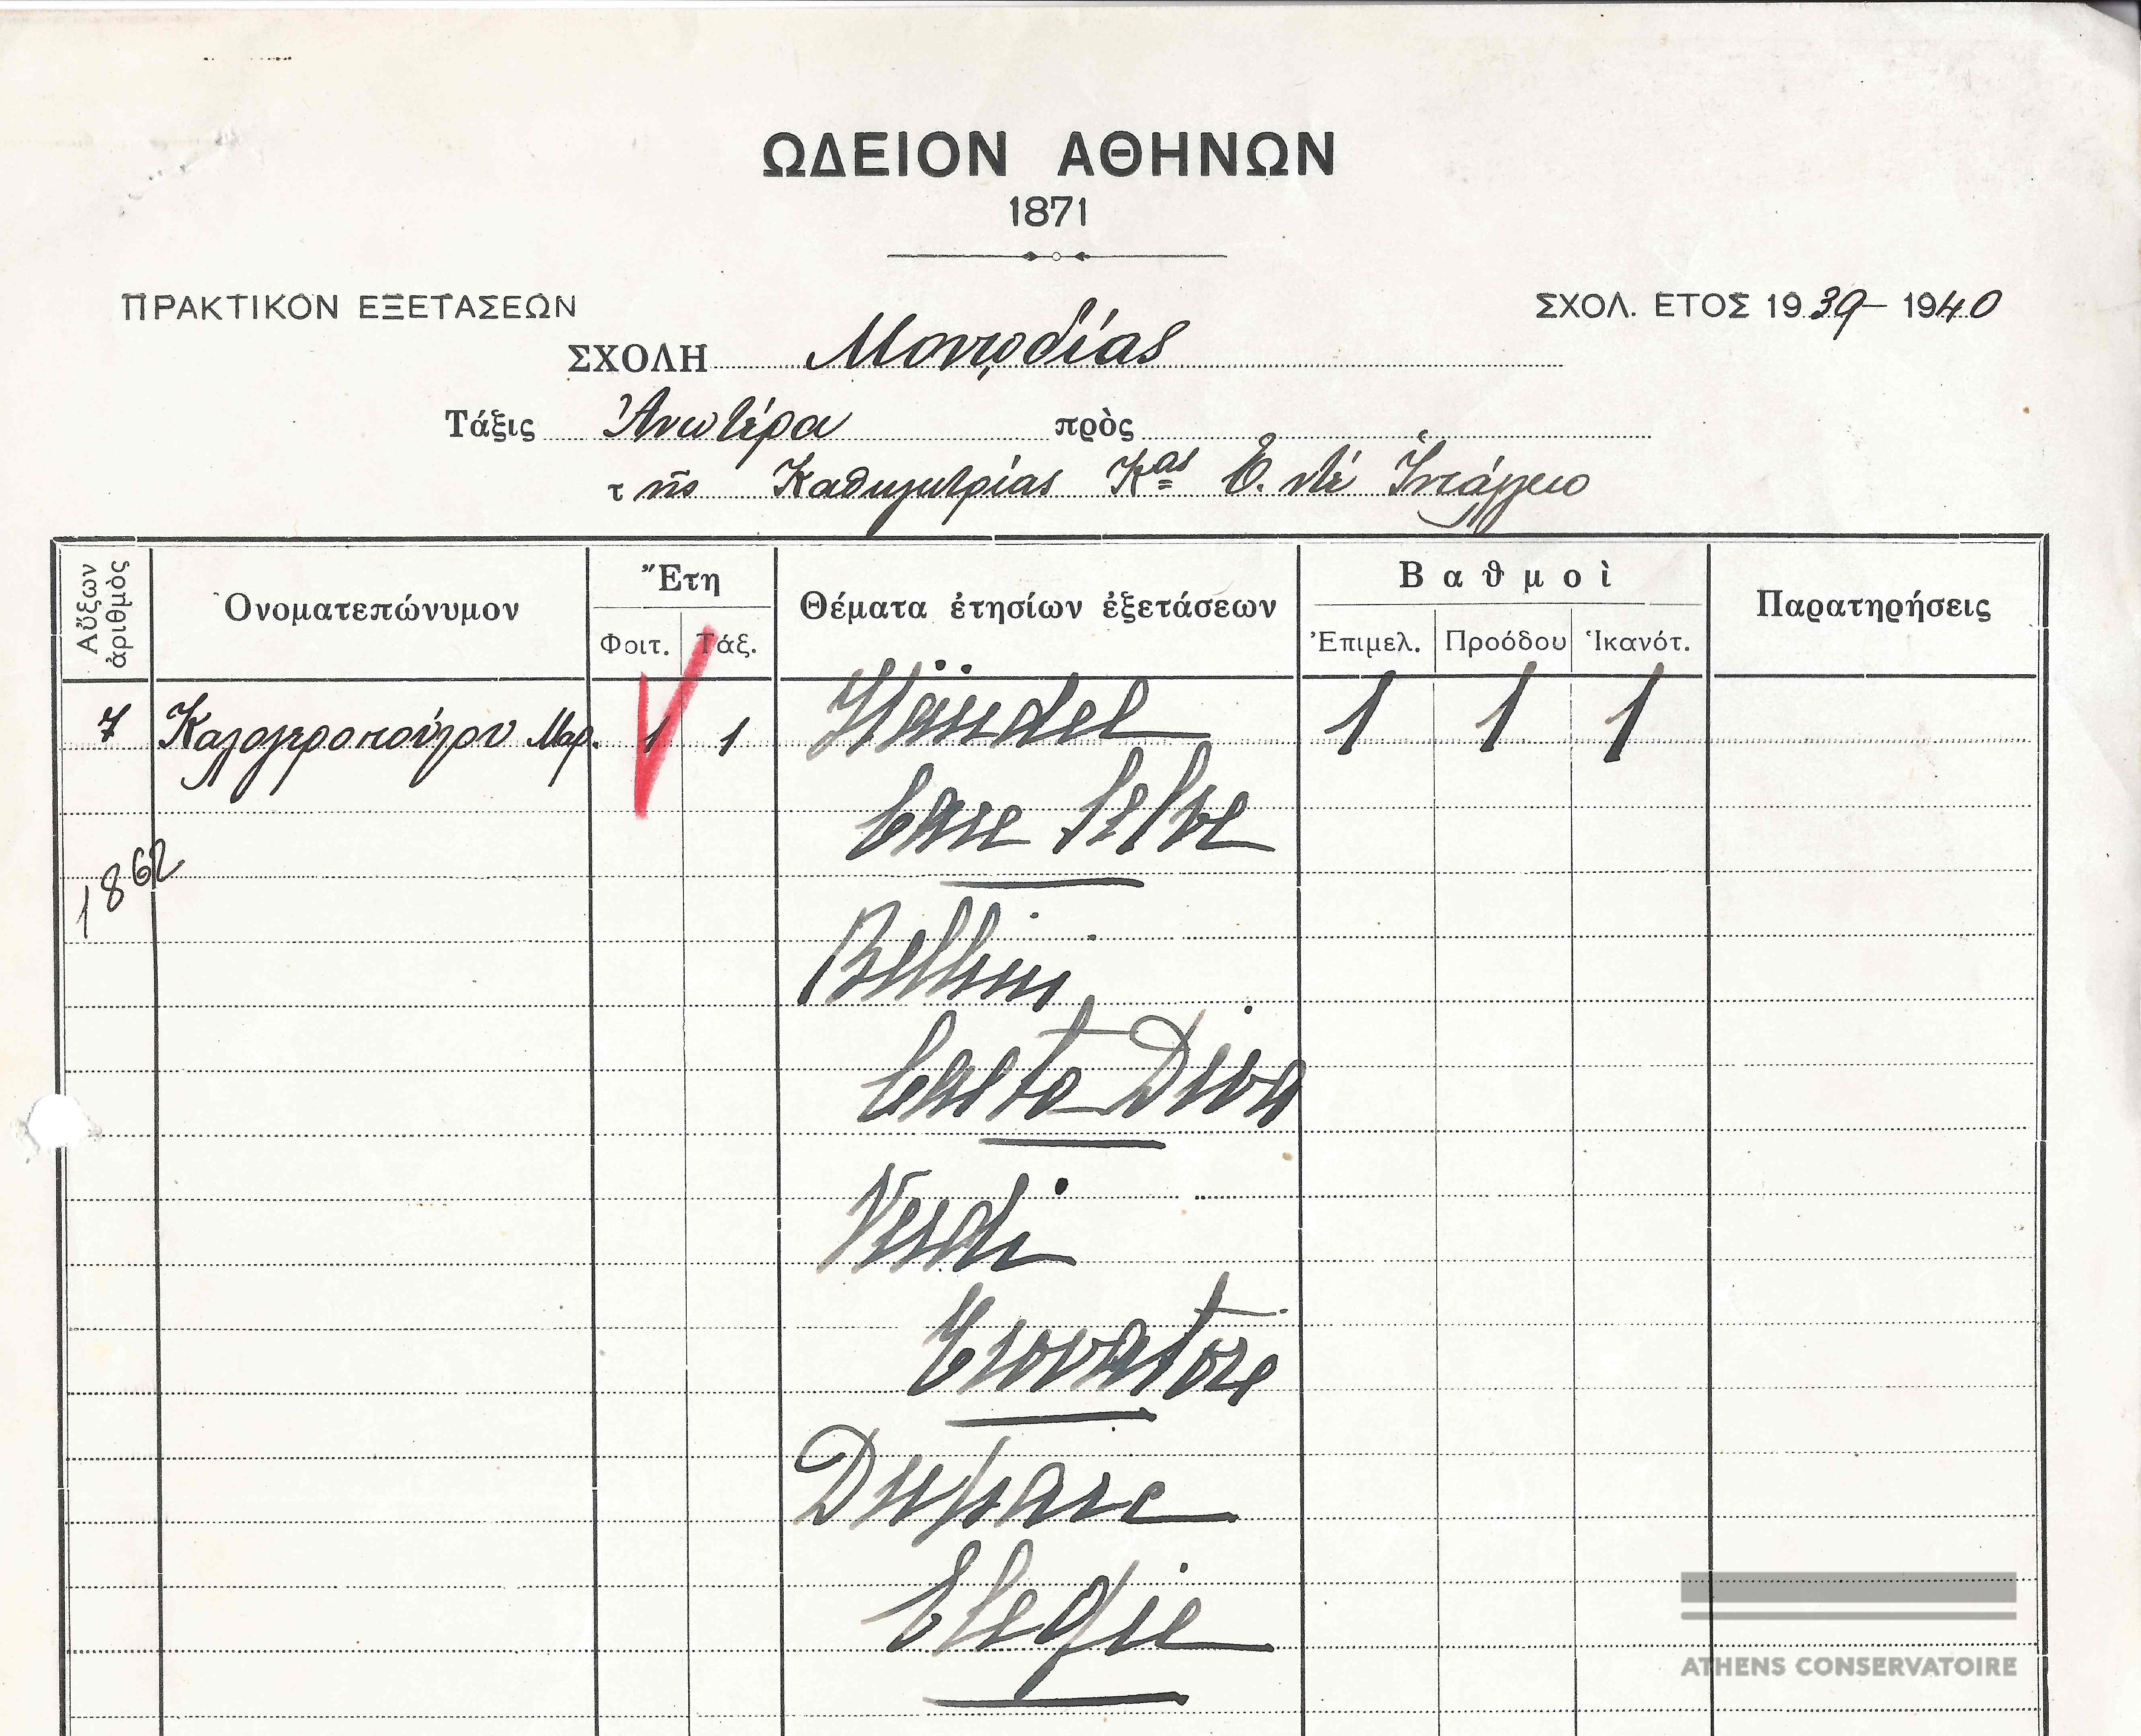 ΩΔΕΙΟΝ ΑΘΗΝΩΝ
1871
ΠΡΑΚΤΙΚΟΝ ΕΞΕΤΑΣΕΩΝ
ΣΧΟΛ. ΕΤΟΣ 1939– 1940
ΣΧΟΛΗ Μονῳδίας
Τάξις Ἀνωτέρα πρὸς
τῆς Καθηγητρίας Κας Ἐ. ντὲ Ἱντάλγκο
Αὔξων ἀριθμὸς
Ὀνοματεπώνυμον
Ἔτη
Φοιτ. Τάξ.
Θέματα ἐτησίων ἐξετάσεων
Βαθμοὶ
Ἐπιμελ. Προόδου Ἱκανότ.
Παρατηρήσεις
7 Καλογεροπούλου Μαρ. 1 1 Händel 1 1 1
Care Selve
1862
Bellini
Casta Diva
Verdi
Trovatore
Duparc
Elegie
ATHENS CONSERVATOIRE